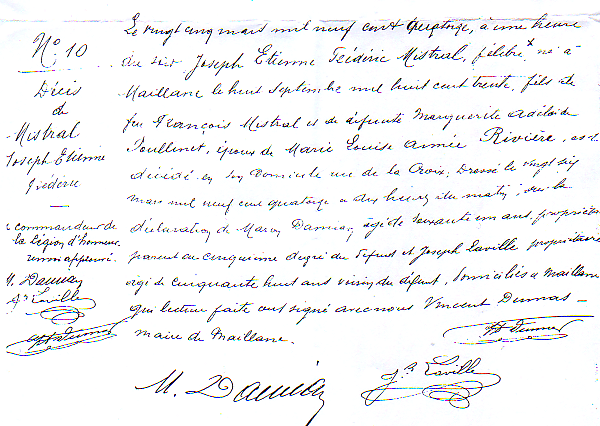 N° 10
Décès
de
Mistral
Joseph Etienne
Frédéric
x commandeur de
la Légion d'honneur
renvoi approuvé.
M. Dauman
Jh Laville
Le vingt cinq mars mil neuf cent quatorze, à une heure
du soir Joseph Etienne Frédéric Mistral, félibre x né à
Maillane le huit septembre mil huit cent trente, fils de
feu François Mistral et de defunte Marguerite Adélaïde
Poullinet, époux de Marie Louise Aimée Rivière, est
décédé en son domicile rue de la Croix; Dressé le vingt six
mars mil neuf cent quatorze a dix heures du matin, sur la
déclaration de Marius Dauman, âgé de soixante un ans, propriétaire
parent au cinquième degré du défunt et Joseph Laville propriétaire
âgé de cinquante huit ans voisin du défunt, domiciliés a Maillane
qui lecture faite ont signé avec nous Vincent Dumas
maire de Maillane.
M. Dauman
Jh Laville